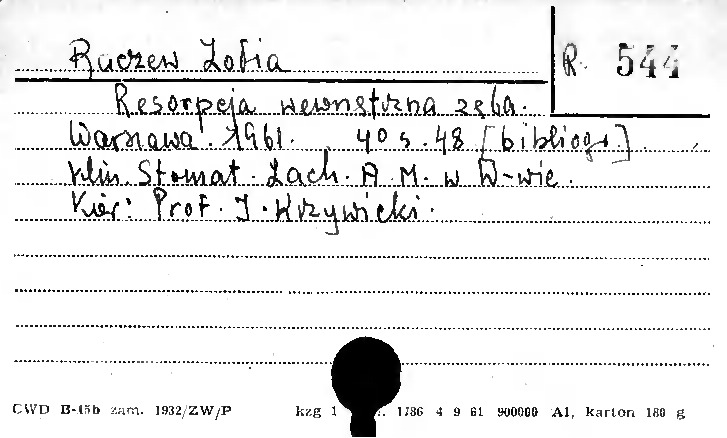 Raczew Zofia
R. 544
Resorpcja wewnętrzna zęba.
Warszawa 1961. 40 s. 48 [bibliogr]
Klin. Stomat. Zach. A. M. w W-wie.
Kier: Prof. J. Krzywicki.
CWD B-45b zam. 1932/ZW/P kzg 1 1786 4 9 61 900000 A1, karton 180 g